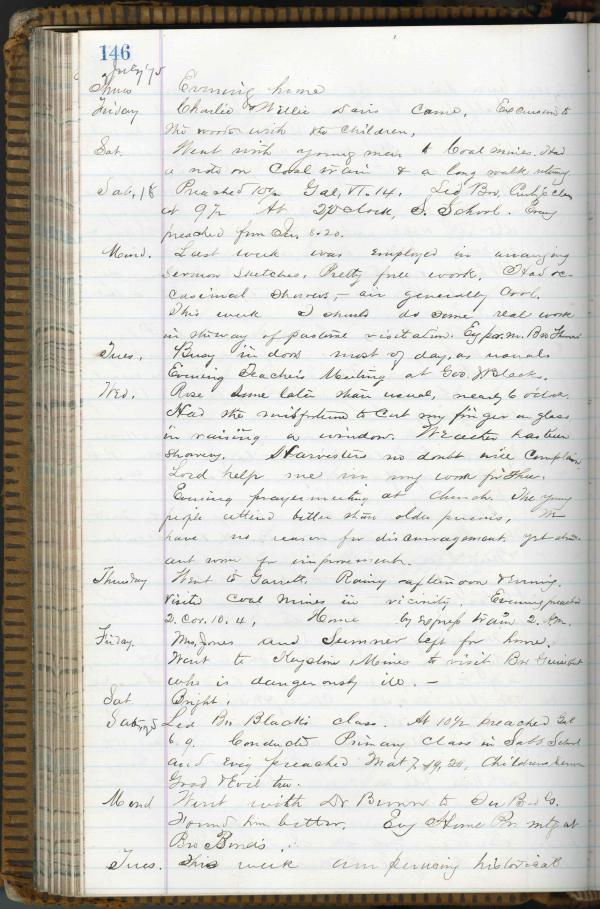 146
July '75
Thurs Evening home
Friday Charlie & Willie Davis came, Excursion to
the woods with the children,
Sat. Went with young men to Coal mines. Had
a ride on Coal train & a long walk
Sab, 18 Preached 10 Gal, VI. 14. Led Bro, class
at 9½ At 2 o'clock, S. School. Evng
preached from 8.20.
Mond. Last week was employed in arranging
Sermon Sketches, Pretty full work. Had oc-
casional showers, – air generally Cool.
This week I should do some real work
in the way of pastoral visitation. Eg pr. m. Bro
Tues, Busy in doors most of day, as usual
Evening Teachers Meeting at Geo. J. Blacks.
Wed, Rose some later than usual, nearly 6 o'clock.
Had the misfortune to Cut my finger on glass
in raising a window. Weather has been
showery. Harvesters no doubt will Complain
Lord help me in my work for Thee.
Evening prayermeeting at Church. The young
people attend better than older persons, We
have no reason for discouragement yet abun-
dant room for improvement.
Thursday Went to Garrett. Rainy afternoon & evening.
Visited coal mines in vicinity. Evening preached
2. Cor. 10. 4, Home by express train 2. A.M.
Friday. Mrs, Jones and Sumner left for home.
Went to Keystone Mines to visit Bro
who is dangerously ill. –
Sat Bright.
Sab, 25 Led Bro Blacks class. At 10½ preached Gal
6. 9. Conducted Primary Class in Sabb School
and Evng preached Mat 7. 19, 20, Childrens sermon
Good & Evil tree.
Mond Went with Dr to See Bro G.
Found him better. Evg Home Pr. mtg at
Bro Bonds.
Tues. This week am perusing historical